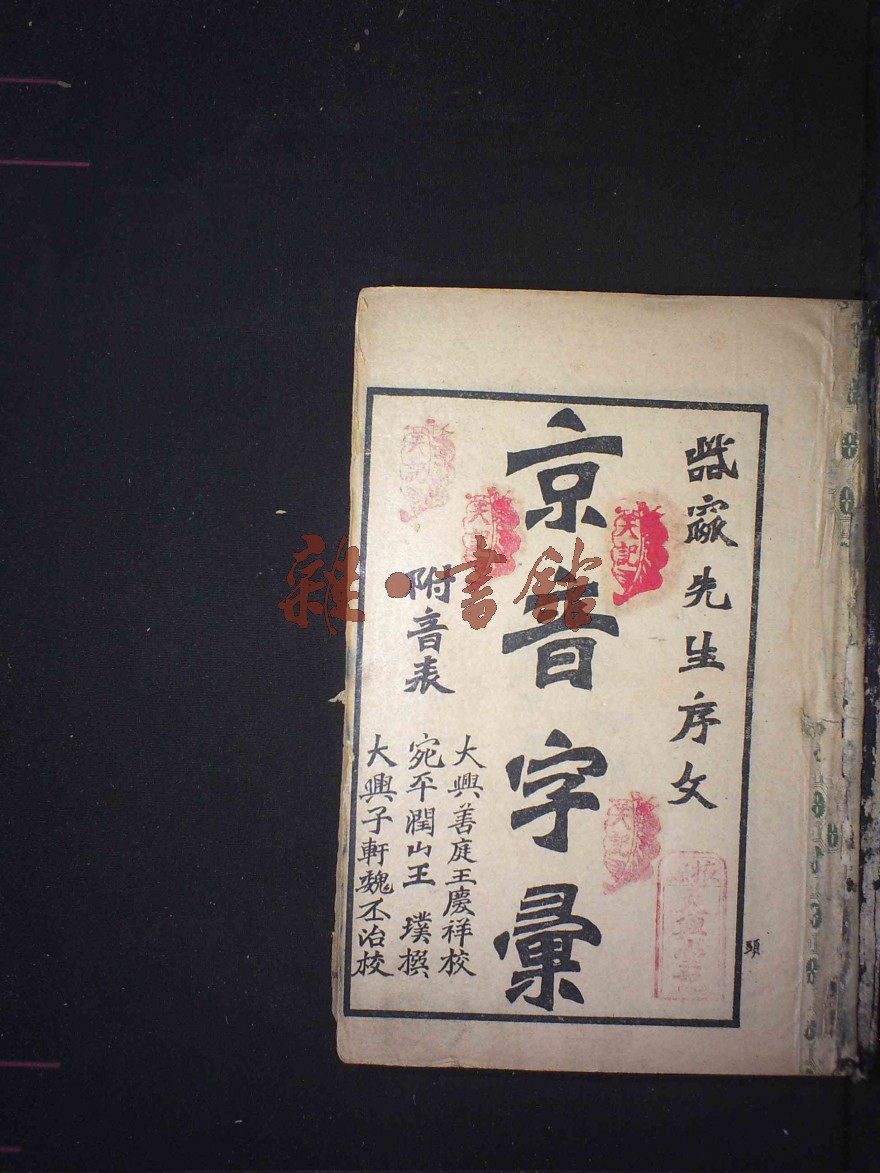 先生序文
京音字彙
附音表
大興善庭王慶祥校
宛平潤山王璞撰
大興子軒魏丕治校
頭
雜·書館
笑記
笑記
笑記
笑記